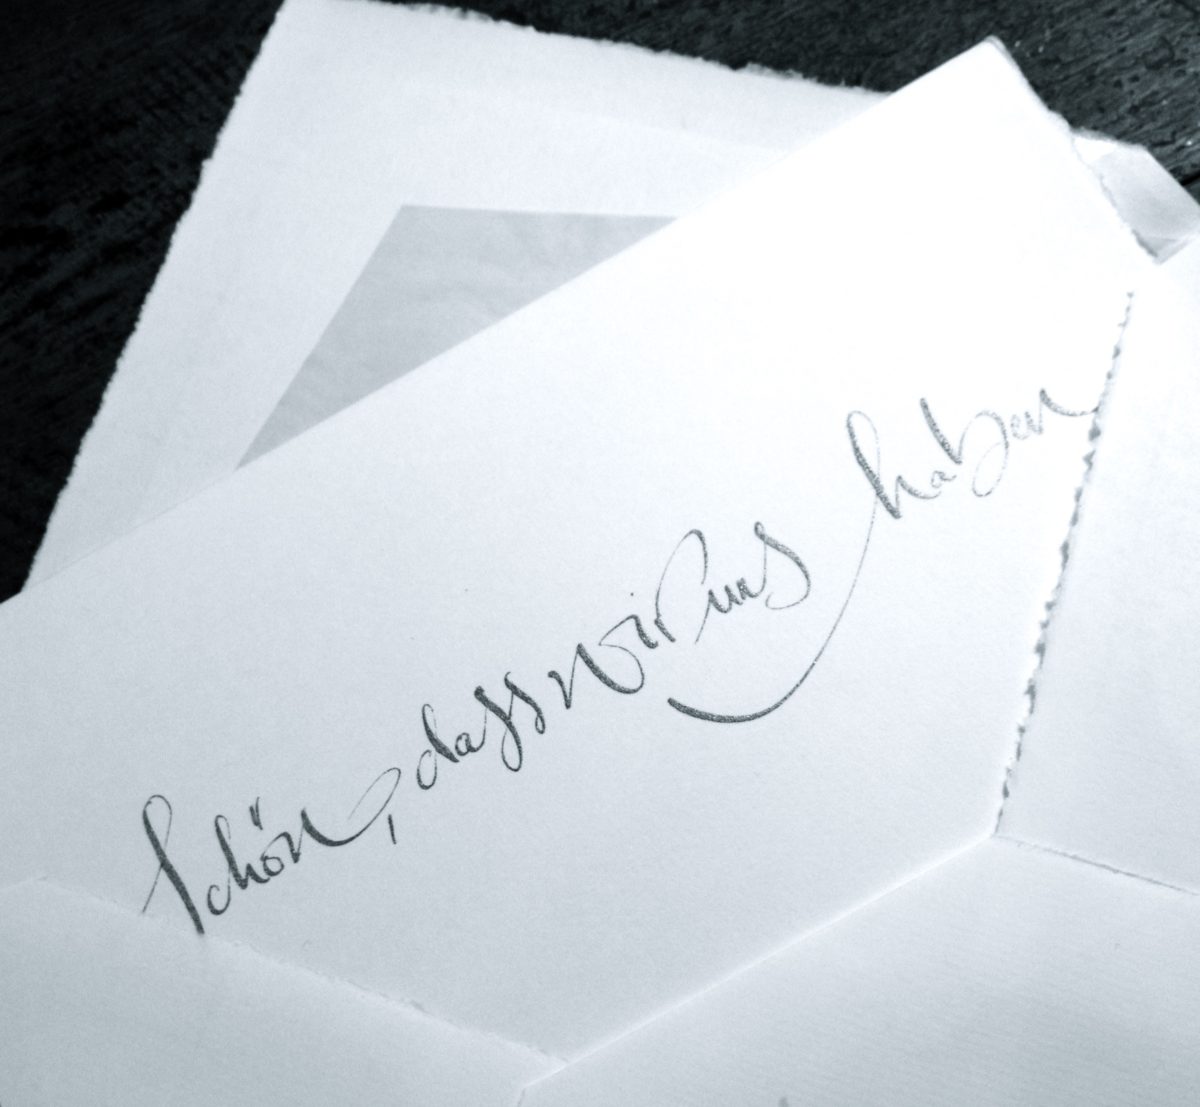 Schön, dass wir uns haben